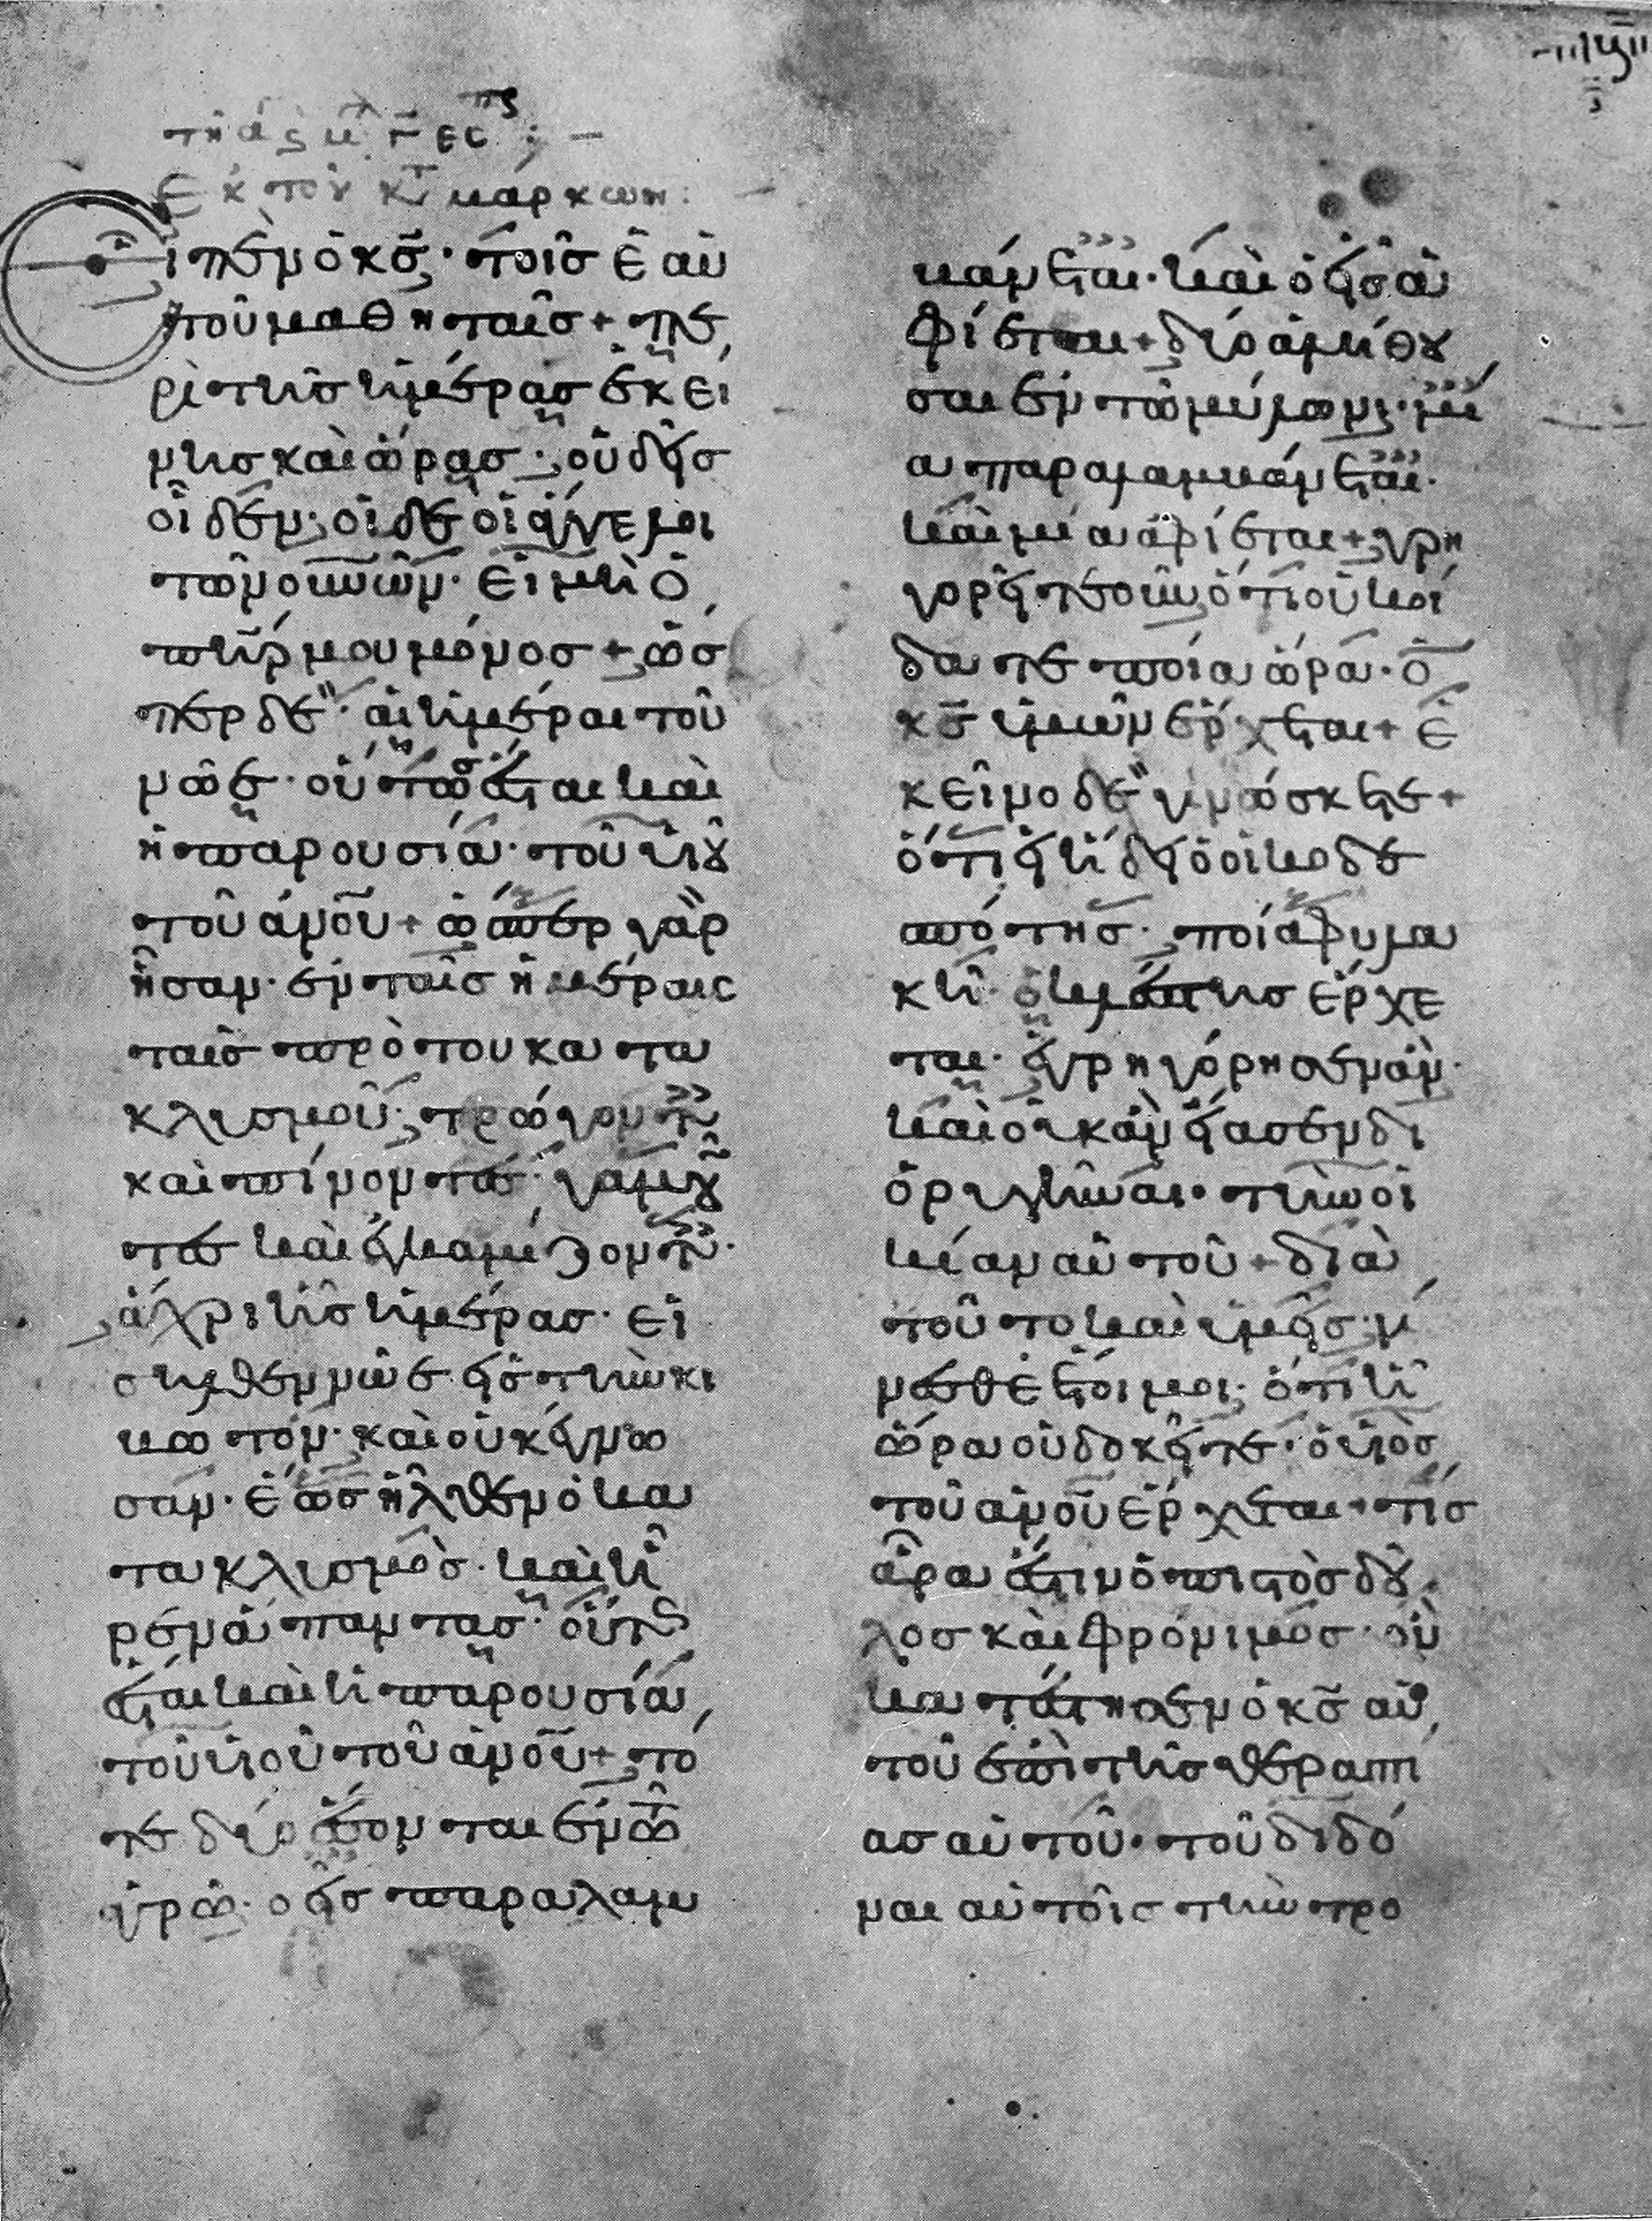 Εκ του κτ μαρκον:
Ειπεν ὁ κς· τοῖσ ἑαυ
τοῦ μαθηταῖσ + πε
ρὶ τῆσ ἡμέρασ ἐκεί
νησ καὶ ὥρασ· οὐδεὶσ
οἶδεν· οἱ δὲ οἱ ἄγγελοι
τῶν οὐνῶν· εἰ μὴ ὁ
πηρ μου μόνοσ + ὥσ
περ δὲ· αἱ ἡμέραι τοῦ
νῶε· οὕτωσ ἔσται καὶ
ἡ παρουσία· τοῦ υἱοῦ
τοῦ ανου + ὥσπερ γὰρ
ἦσαν· ἐν ταῖσ ἡμέραις
ταῖσ πρὸ του κατα
κλυσμοῦ· τρώγοντεσ
καὶ πίνοντεσ· γαμοῦν
τεσ καὶ ἐκγαμίζοντεσ·
ἄχρι ἧσ ἡμέρασ· εἰ
σῆλθεν νῶε εἰσ τὴν κι
βωτόν· καὶ οὐκ ἔγνω
σαν· ἕωσ ἦλθεν ὁ κα
τακλυσμὸσ· καὶ ἦ
ρεν ἅπαντασ· οὕτωσ
ἔσται καὶ ἡ παρουσία
τοῦ υἱοῦ τοῦ ανου + τό
τε δύο ἔσονται ἐν τῶ
ἀγρῶ· ὁ εἷσ παραλαμ
βάνεται· καὶ ὁ εἷσ ἀ
φίεται + δύο ἀλήθου
σαι ἐν τῶ μύλωνι· μί
α παραλαμβάνεται·
καὶ μία ἀφίεται + γρη
γορεῖτε οὖν ὅτι οὐκ οἴ
δατε ποία ὥρα· ὁ
κς ὑμῶν ἔρχεται + ἐ
κεῖνο δὲ γινώσκετε +
ὅτι εἰ ἤδει ὁ οἰκοδε
σπότησ· ποία φυλα
κῆ· ὁ κλέπτησ ἔρχε
ται· ἐγρηγόρησεν ἄν·
καὶ οὐκ ἂν εἴασεν δι
ορυγῆναι· τὴν οἰ
κίαν αὐτοῦ + διὰ
τοῦτο καὶ ὑμεῖσ· γί
νεσθε ἕτοιμοι· ὅτι ἧ
ὥρα οὐ δοκεῖτε· ὁ υἱὸσ
τοῦ ανου ἔρχεται + τίσ
ἄρα ἐστιν ὁ πιστὸσ δοῦ
λοσ καὶ φρόνιμοσ· ὃν
κατέστησεν ὁ κς αὐ
τοῦ ἐπὶ τῆσ θεραπεί
ασ αὐτοῦ· τοῦ διδό
ναι αὐτοῖς τὴν τρο